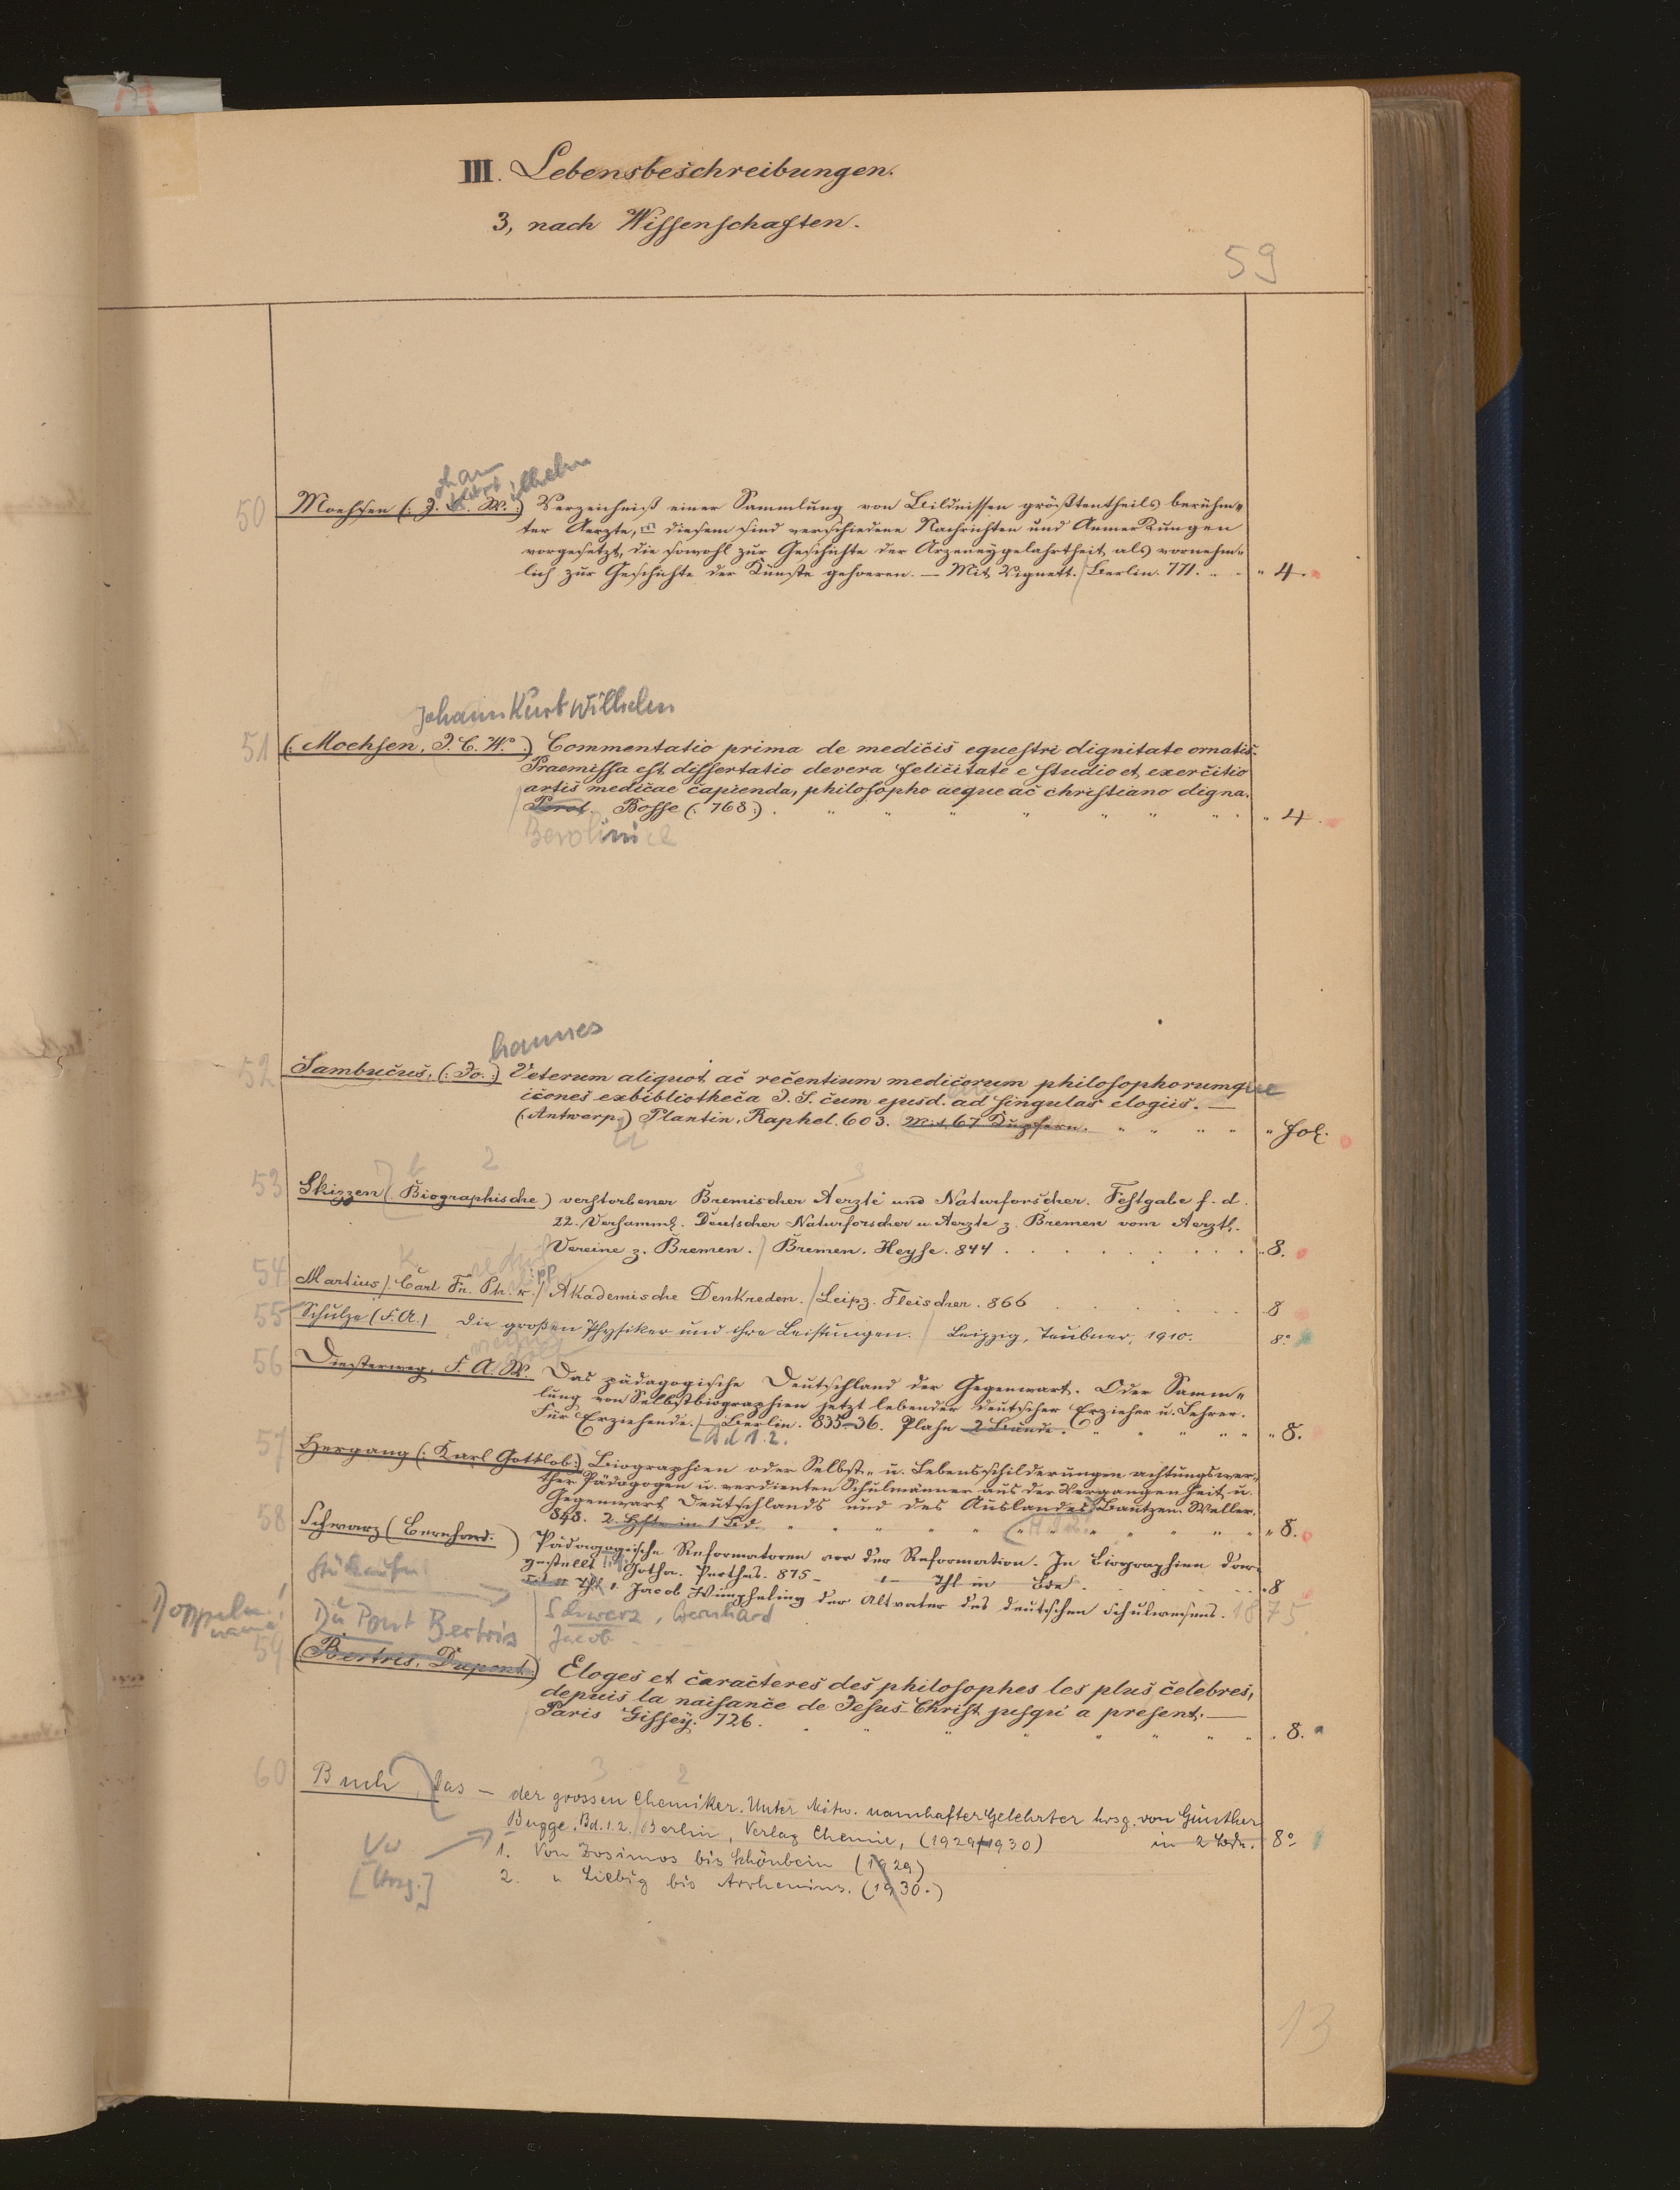 III. Lebensbeschreibungen.
3, nach Wissenschaften.
59
50 Moehsen (: J. C. W. :) Verzeichniß einer Sammlung von Bildnissen größtentheils berühm-
ter Aerzte, diesem sind verschiedene Nachrichten und Anmerkungen
vorgesetzt, die sowohl zur Geschichte der Arzeneygelahrtheit als vornehm-
lich zur Geschichte der Künste gehoeren. — Mit Vignett. Berlin. 771. " 4.
Johann Kurt Wilhelm
51 (: Moehsen, J. C. W. :) Commentatio prima de medicis equestri dignitate ornatis.
Praemissa est dissertatio de vera felicitate e studio et exercitio
artis medicae capienda, philosopho aeque ac christiano digna.
Berol. Bosse (: 768 :) . " 4.
Berolini
hannes
52 Sambucus, (: Jo. :) Veterum aliquot ac recentium medicorum philosophorumque
icones ex bibliotheca J. S. cum ejusd. ad singulas elogiis. —
(: Antwerp :) Plantin, Raphel. 603. Mit 67 Kupfern. " fol.
53 Skizzen (Biographische) verstorbener Bremischer Aerzte und Naturforscher. Festgabe f. d.
22. Versamml. Deutscher Naturforscher u. Aerzte z. Bremen vom Aerztl.
Vereine z. Bremen. Bremen. Heyse. 844 . " 8.
54 Martius / Carl Fr. Ph. v. / Akademische Denkreden. / Leipz. Fleischer. 866 8
55 Schulze (F. A.) Die großen Physiker und ihre Leistungen. Leipzig, Teubner, 1910. 8°
56 Diesterweg, F. A. W. Das pädagogische Deutschland der Gegenwart. Oder Samm-
lung von Selbstbiographien jetzt lebender deutscher Erzieher u. Lehrer.
Für Erziehende. — Berlin. 835-36. Plahn 2 Bände. " 8.
Bd 1. 2.
57 Hergang (: Karl Gottlob :) Biographien oder Selbst- u. Lebensschilderungen achtungswer-
ther Pädagogen u. verdienten Schulmänner aus der Vergangenheit u.
Gegenwart Deutschlands und des Auslandes. Bautzen. Weller.
848. 2 Hfte in 1 Bd. " 8.
58 Schwarz (Bernhard.) Pädagogische Reformatoren vor der Reformation. In Biographien dar-
gestellt Gotha. Perthes. 875- 1- Thl in Bde. 8
Thl 1. Jacob Wimpheling der Altvater des deutschen Schulwesens. 1875
Doppeln. !
name
Du Pont Bertris
Schwarz, Bernhard
Jacob
59 (Bertris, Dupont :) Eloges et caracteres des philosophes les plus celebres,
depuis la naisance de Jesus-Christ jusqu'a present. —
Paris Gissey. 726. " 8.
60 Buch, das — der grossen Chemiker. Unter Mitw. namhafter Gelehrter hrsg. von Günther
Bugge. Bd. 1. 2. Berlin, Verlag Chemie, (1929/1930) in 2 Bdn. 8°
1. Von Zosimos bis Schönbein (1929)
2. " Liebig bis Arrhenius. (1930.)
Vw
[Hrsg.]
13